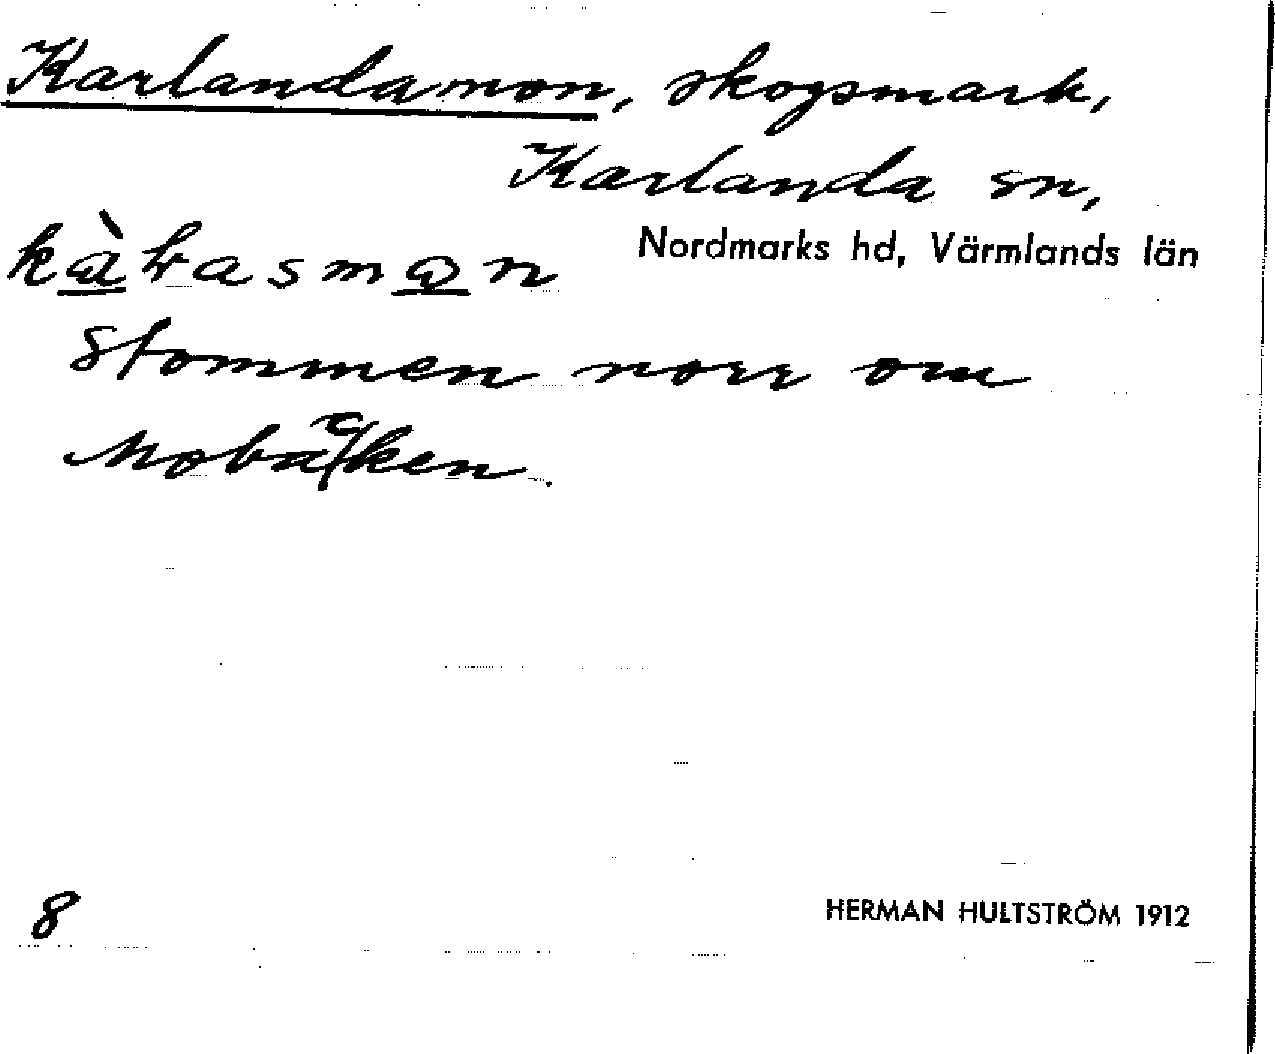 Karlandamon, skogsmark,
Karlanda sn,
Nordmarks hd, Värmlands län
Stommen norr om
Mobäcken.
8
HERMAN HULTSTRÖM 1912